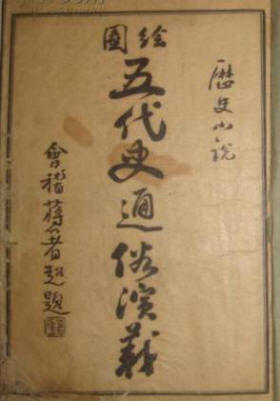 歷史小説
繪圖
五代史通俗演義
會稽蔣著超題